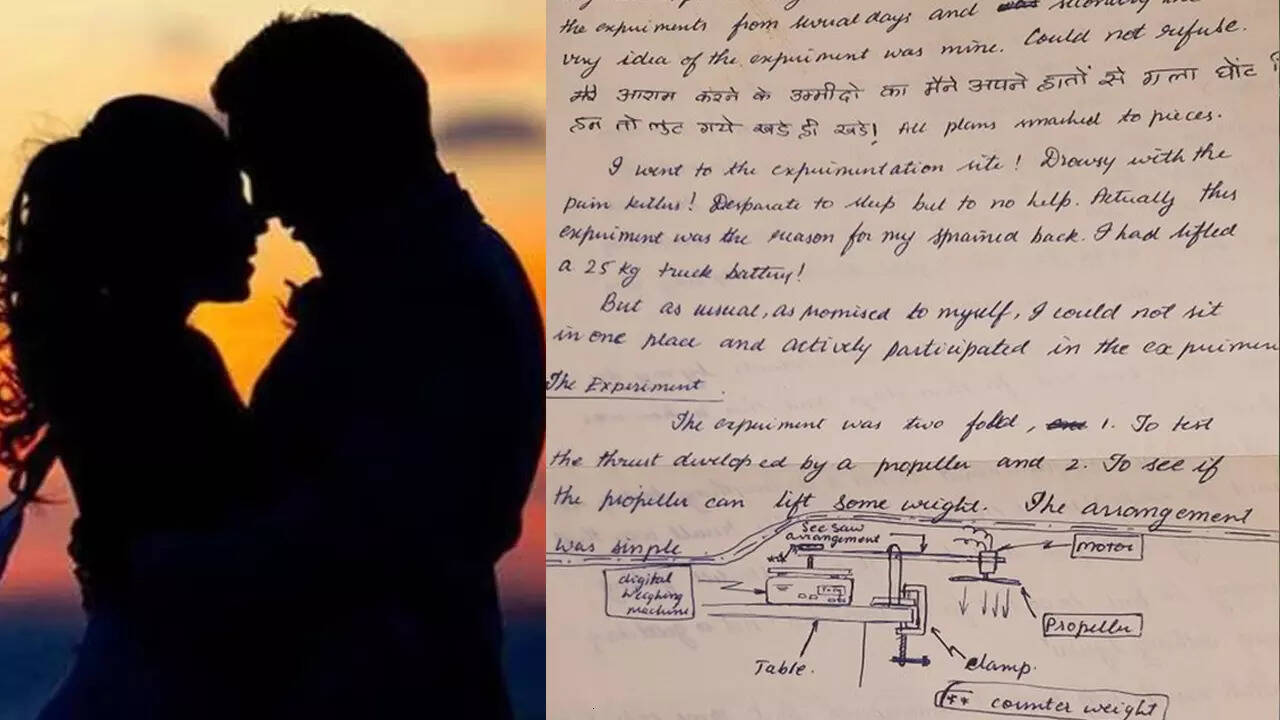 the experiments from several days and was secondly the
very idea of the experiment was mine. Could not refuse.
मेरे आराम करने के उम्मीदो का मैने अपने हातों से गला घोंट
हम तो लुट गये खडे ही खडे! All plans smached to pieces.
I went to the experimentation site! Drowsy with the
pain killers! Desparate to sleep but to no help. Actually this
experiment was the reason for my sprained back. I had lifted
a 25 kg truck battery!
But as usual, as promised to myself, I could not sit
in one place and actively participated in the experimen
The Experiment.
The experiment was two fold, one 1. To test
the thrust developed by a propeller and 2. To see if
the propeller can lift some weight. The arrangement
was simple
See saw
arrangement
**
motor
digital
weighing
machine
Propeller
Table.
clamp.
** counter weight